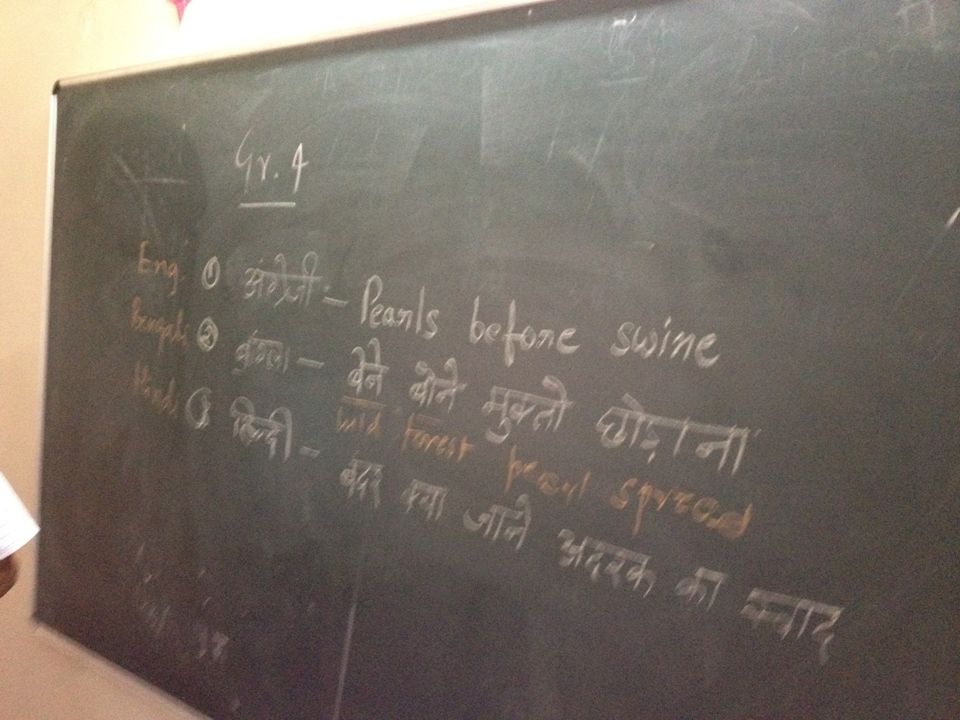 Gr. 4
Eng. ① अंग्रेजी - Pearls before swine
Bengali ② बांग्ला - बेने बोने मुक्तो छोड़ाना
forest pearl spread
Hindi ③ हिन्दी - बंदर क्या जाने अदरक का स्वाद